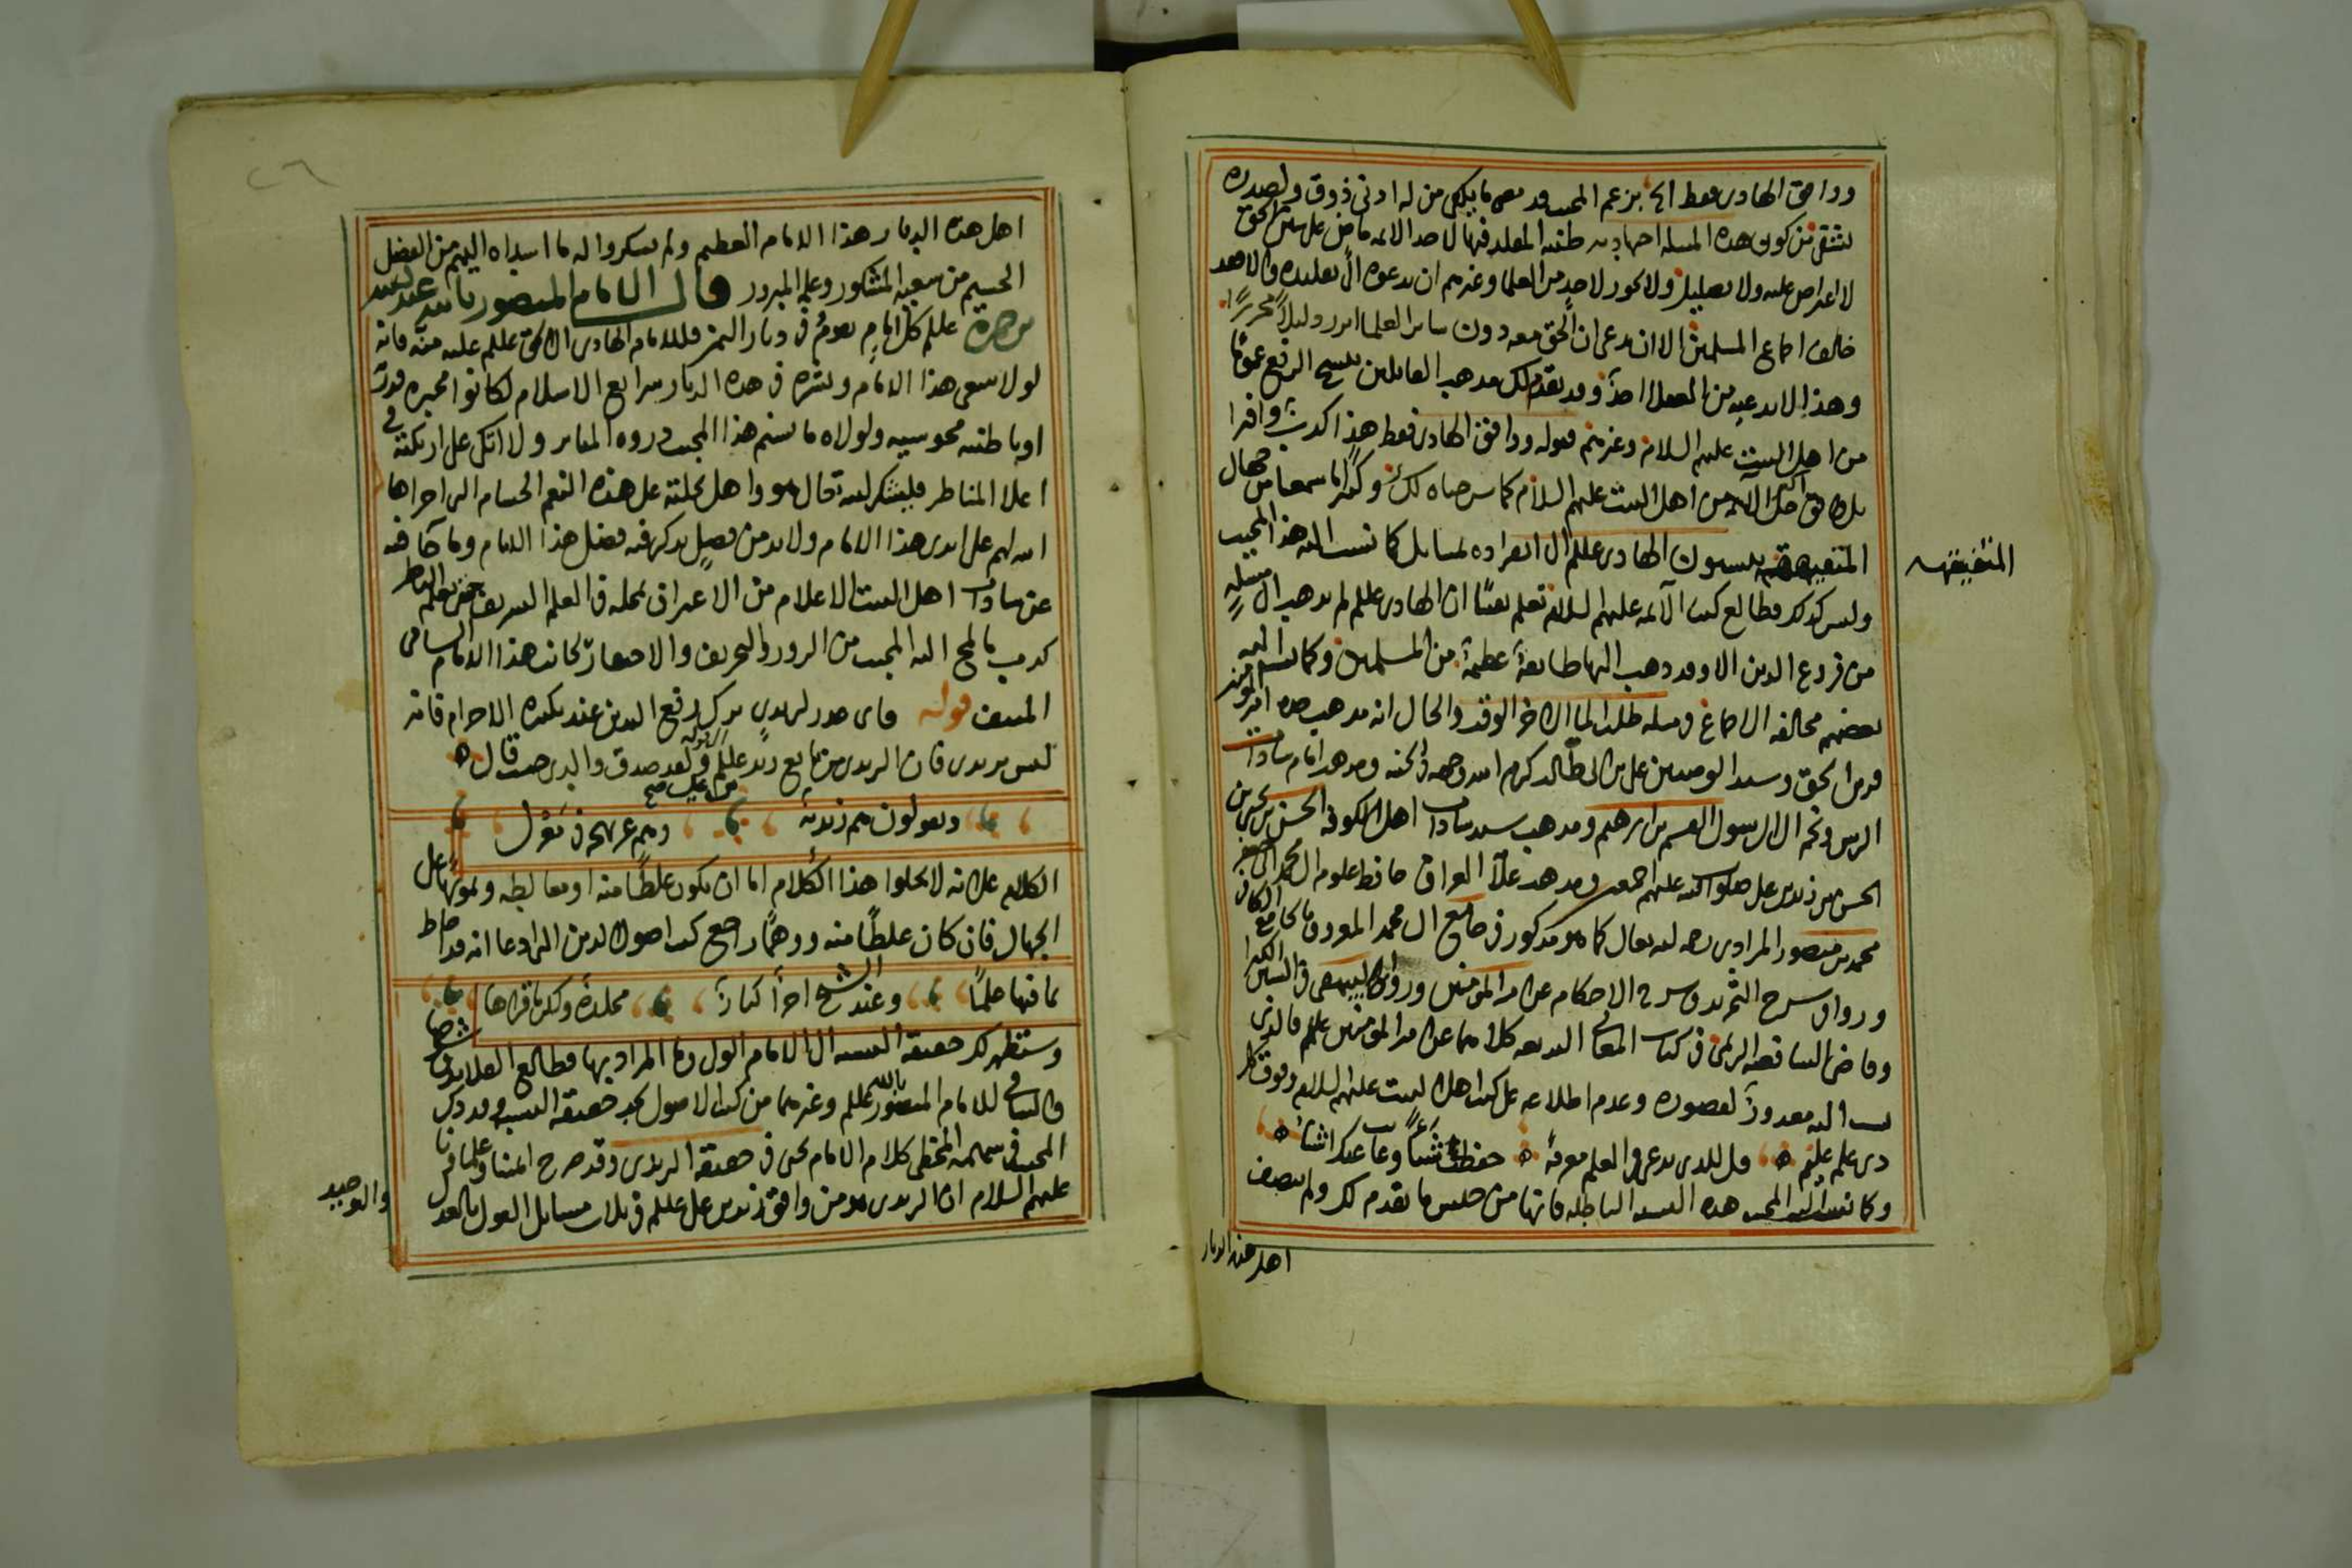 ووافق الهادي فقط الخ بزعم المجيب وقد مضى ما يكفي من له ادنى ذوق ولصدره
من كون هذه المسله اجتهاديه ظنيه المقلد فيها لاحد الائمه ماض على سنن الحق
لا اعتراض عليه ولا ولا يجوز لاحدٍ من العلما وغيرهم ان يدعوه الى تقليده والا فقد
خالف اجماع المسلمين الا ان يدعي ان الحق معه دون ساير العلما ابرز دليلاً محرراً
وهذا لا يدعيه من العقلا احدٌ وقد تقدم لك مذهب القائلين الرفع عموما
من اهل البيت عليهم السلام وغيرهم قوله ووافق الهادي فقط هذا كذب وافترا
بل وافق اكثر الائمه من اهل البيت عليهم السلام كما لك وكثيرا ما سمعنا من جهال
المتفيهقه ينسبون الهادي عللم الى انفراده لمسايل كما نسب اليه هذا المجيب
المتفيقهه
وليس كذلك فطالع كتب الآئمه عليهم السلام تعلم يقيناً ان الهادي عللم لم يذهب الى مسلهٍ
من فروع الدين الا وقد ذهب اليها طايفة عظيمة من المسلمين وكما نسب اليه
بعضهم مخالفه الاجماع في مسله طلب الما الى اخر الوقت والحال انه مذهب جده امير المومنين
وسيد الوصيين علي بن ابي طالب كرم الله وجهه في الجنه ومذهب امام سادات
الرس ونجم ال الرسول القسم بن ابرهيم ومذهب سيد سادات اهل الكوفه الحسن بن يحيى بن
الحسين بن زيد بن علي صلوات الله عليهم اجمعين ومذهب علآ العراق حافظ علوم ال محمد
محمد بن منصور المرادي رحمه الله تعالى كما هو مذكور في جامع ال محمد المعروف بالجامع الكافي
ورواه في شرح التجريد وفي شرح الاحكام عن امير المومنين ورواه البيهقي في السنن الكبرا
في كتاب المعاني البديعه كلاهما عن امير المومنين عللم فالذي
نسب اليه معذورٌ لقصوره وعدم اطلاعه على كتب اهل البيت عليهم السلام وفوق كل
ذي علم عليم قل للذي يدعي في العلم معرفةً حفظت شيئاً وغابت عنك اشياءُ
وكما نسب اليه المجيب هذه النسبه الباطله فانها من جنس ما تقدم لك ولم ينصف
اهل هذه الديار
اهل هذه الديار هذا الامام العظيم ولم يشكروا له ما اسداه اليهم من الفضل
الجسيم من سعيه المشكور وعلمه المبرور قال الامام المنصور بالله عبد الله
بن حمزة عللم كل امامٍ يقومُ في ديار اليمن فللامام الهادي الى الحق عللم عليه منّه فانه
لولا سعى هذا الامام ونشره في هذه الديار شرايع الاسلام لكانوا مجبره
او باطنيه مجوسيه ولولاه ما تسنم هذا المجيب ذروه المنابر ولا اتكى على اريكته في
اعلا المناظر فليشكر الله تعالى هو واهل نحلته على هذه النعم الجسام التي اجراها
الله لهم على ايدي هذا الامام ولا بد من فصلٍ يذكر فيه فضل هذا الامام وما جآ فيه
عن سادات اهل البيت الاعلام من الاعتراف بمحله في العلم الشريف حتى يعلم الناظر
كذب ما لمح اليه المجيب من الزور والتحريف والاحتقار لجانب هذا الامام السامي
المنيف قوله فاي صدر لزيدي يرى كل رفع اليدين عند تكبيره الاحرام فانه
ليس بزيدي فان الزيدي من تابع زيد عللم ولقد صدق والدي حيث قال
ويقولون هم زيديه وهم عن نهجه في معزل
الكلام على انه لا يخلوا هذا الكلام اما ان يكون غلطا منه او مغالطه وتمويها على
الجهال فان كان غلطاً منه ووهماً راجع كتب اصول الدين التي ادعا انه قد احاط
بما فيها علماً وعند الشيخ اجزاً كباراً مجلدة ولكن ما قراها
وستظهر لك حقيقه النسبه الى الامام الولى وما المراد بها فطالع
والشافي للامام المنصور بالله عللم وغيرهما من كتب الاصول تجد حقيقه النسب وقد ذكر
المجيب في كلام الامام يحيى في حقيقه الزيدي وقد صرح ائمتنا وعلماونا
عليهم السلام ان الزيدي هو من وافق زيد بن علي عللم في ثلاث مسايل القول بالعدل
والتوحيد